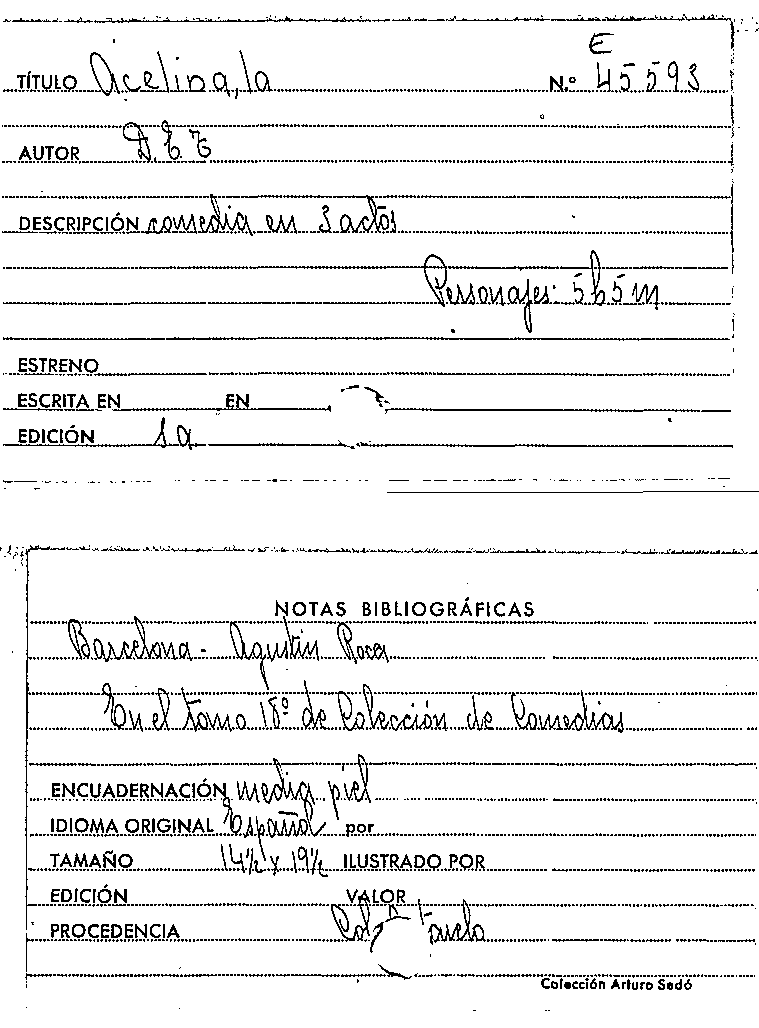 E
TÍTULO Acelina, la N.º 45593
AUTOR D. E. T
DESCRIPCIÓN comedia en 3 actos
Personajes: 5h 5m
ESTRENO
ESCRITA EN EN
EDICIÓN 1a
NOTAS BIBLIOGRÁFICAS
Barcelona - Agustin Roca
En el tomo 18º de Colección de Comedias
ENCUADERNACIÓN media piel
IDIOMA ORIGINAL Español por
TAMAÑO 14½ x 19½ ILUSTRADO POR
EDICIÓN VALOR
PROCEDENCIA
Colección Arturo Sedó